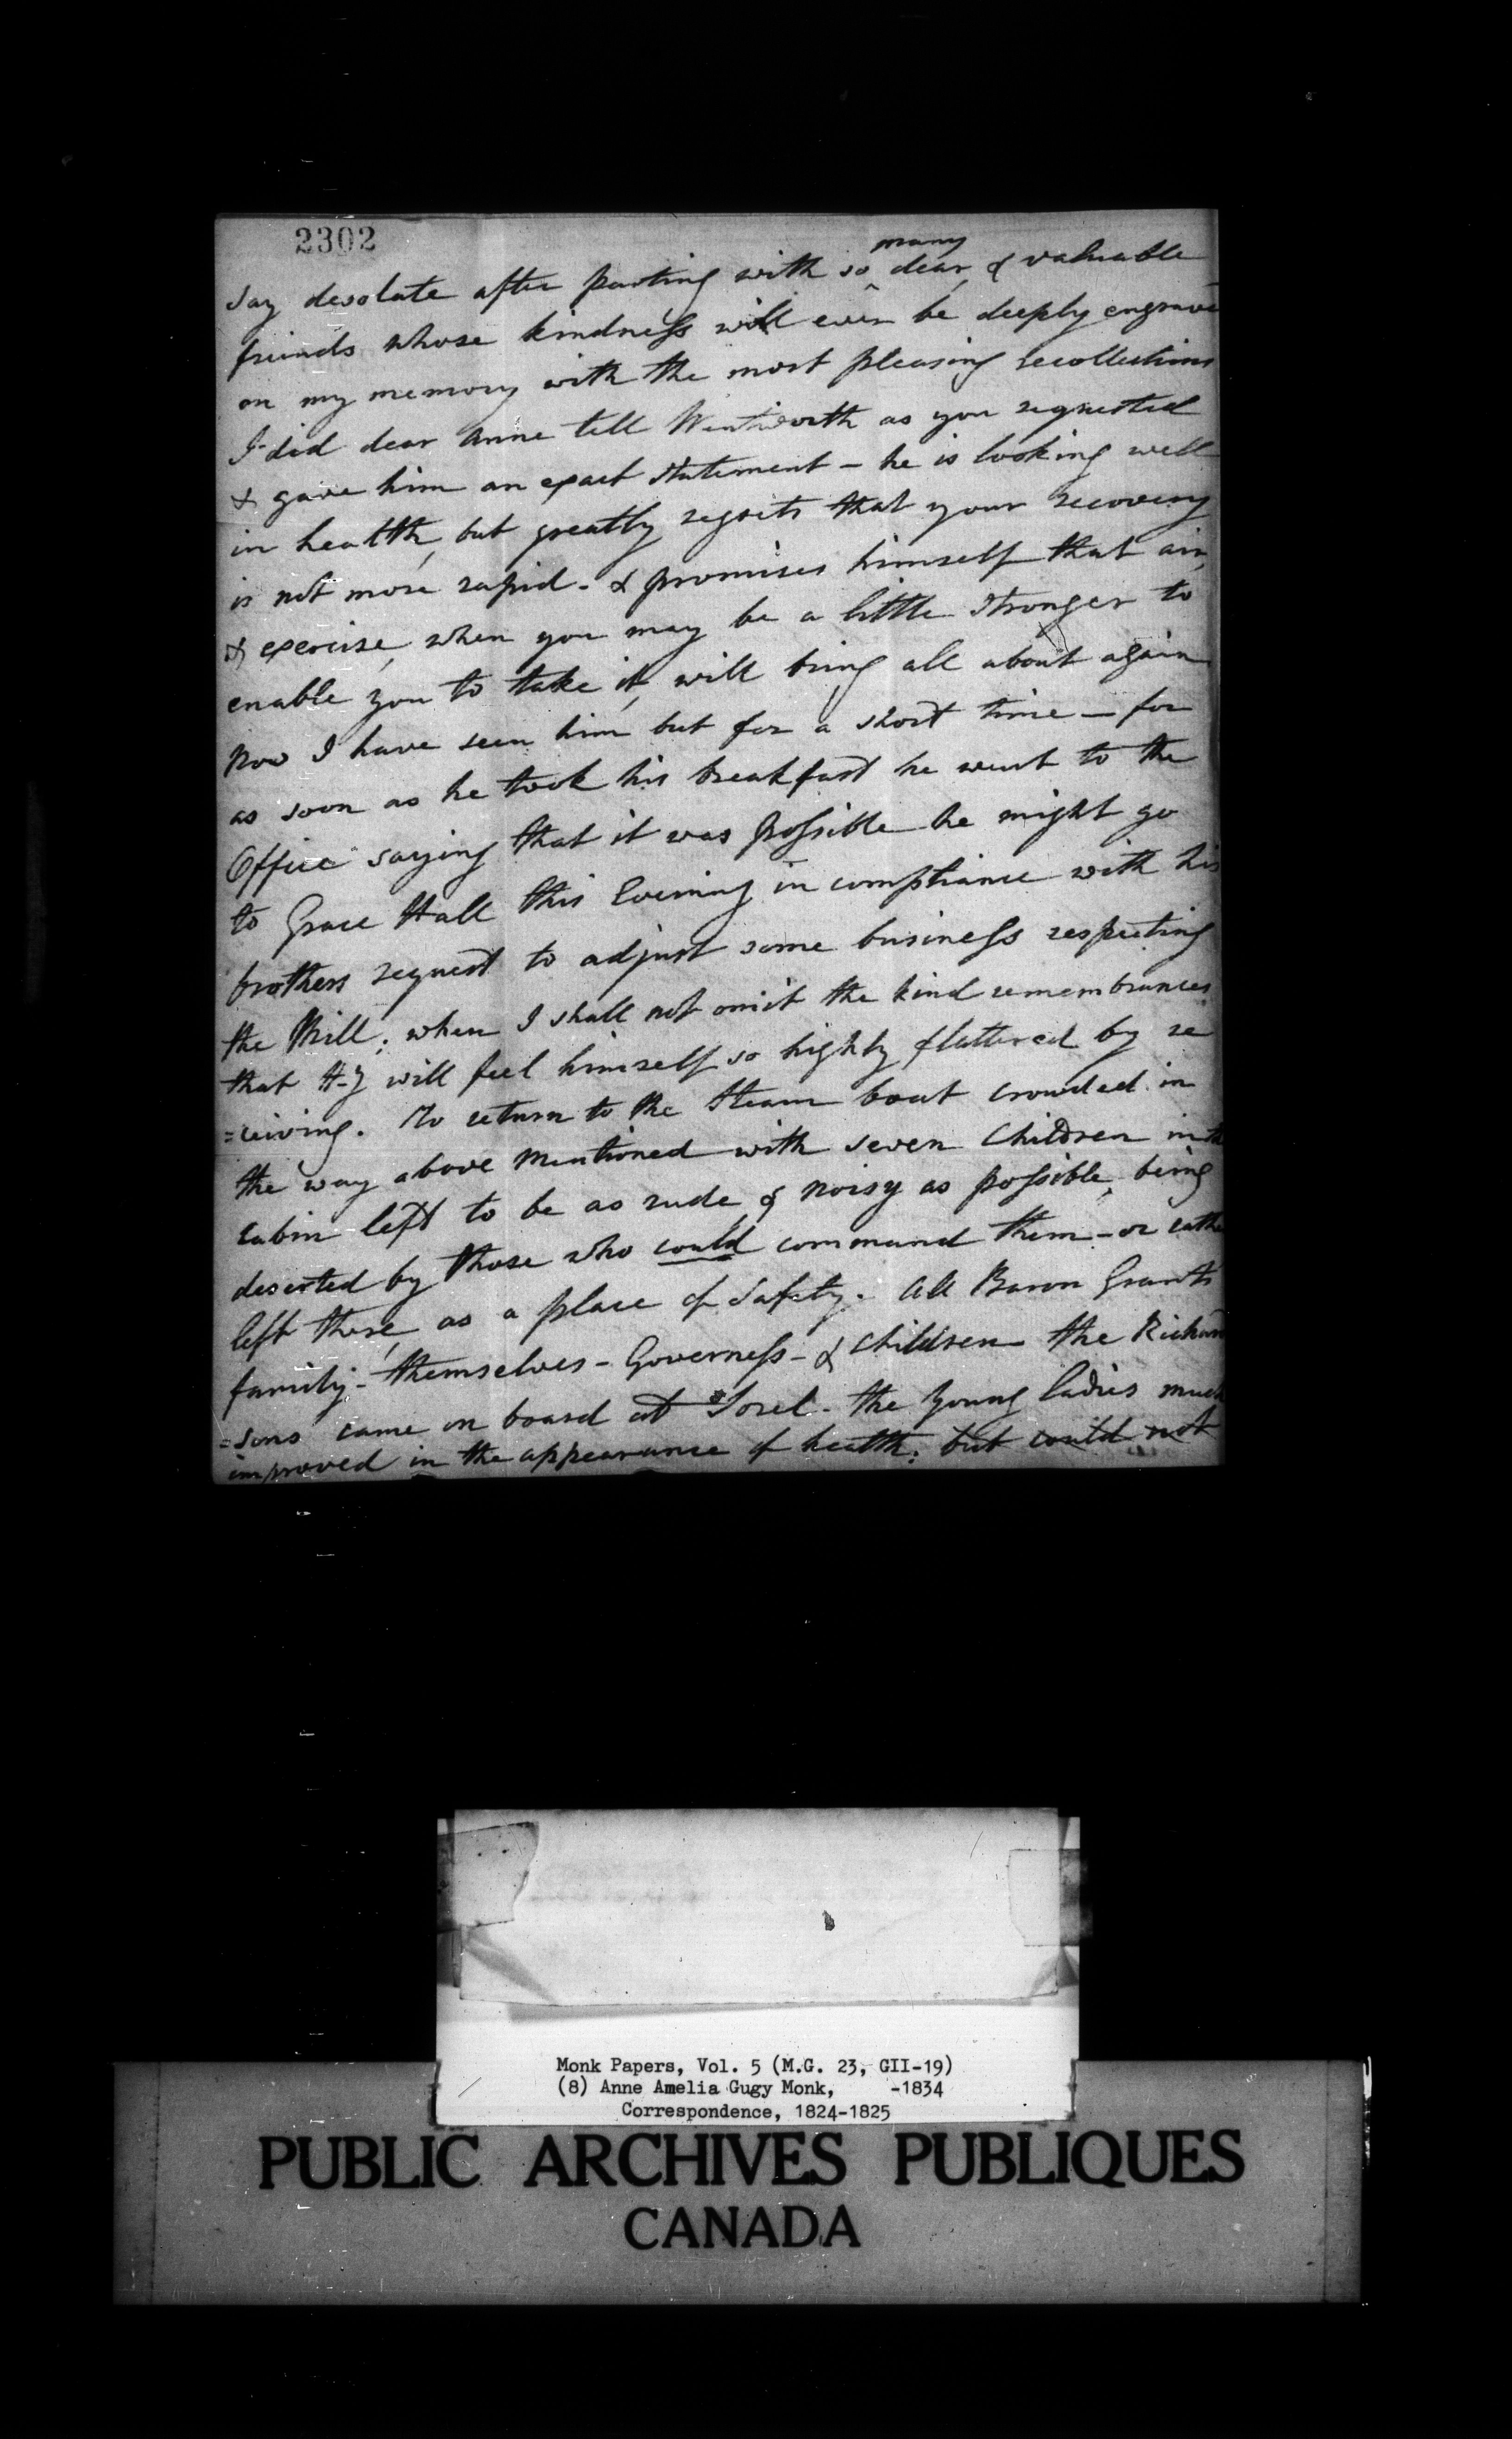 2302
say desolate after parting with so many dear, & valuable
friends whose kindness will ever be deeply engrave
on my memory with the most pleasing recollections
I did dear Anne tell Wentworth as you requested
& gave him an exact statement - he is looking well
in health, but greatly regrets that your recovery
is not more rapid - & promises himself that air,
& exercise, when you may be a little stronger to
enable you to take it, will bring all about again
now I have seen him but for a short time - for
as soon as he took his breakfast he went to the
Office saying that it was possible he might go
to Grace Hall this Evening in compliance with his
brothers request to adjust some business respecting
the Mill; when I shall not omit the kind remembrances
that H-y will feel himself so highly flattered by re
=ceiving. To return to the Steam boat crowded in
the way above mentioned with seven Children in the
cabin left to be as rude & noisy as possible, being
deserted by those who could command them - or rathe
left there, as a place of safety. All Baron Grants
family - themselves - Governess - & children the Richard
=sons came on board at Sorel - the Young ladies much
improved in the appearance of health; but could not
Monk Papers, Vol. 5 (M.G. 23, GII-19)
(8) Anne Amelia Gugy Monk, -1834
Correspondence, 1824-1825
PUBLIC ARCHIVES PUBLIQUES
CANADA